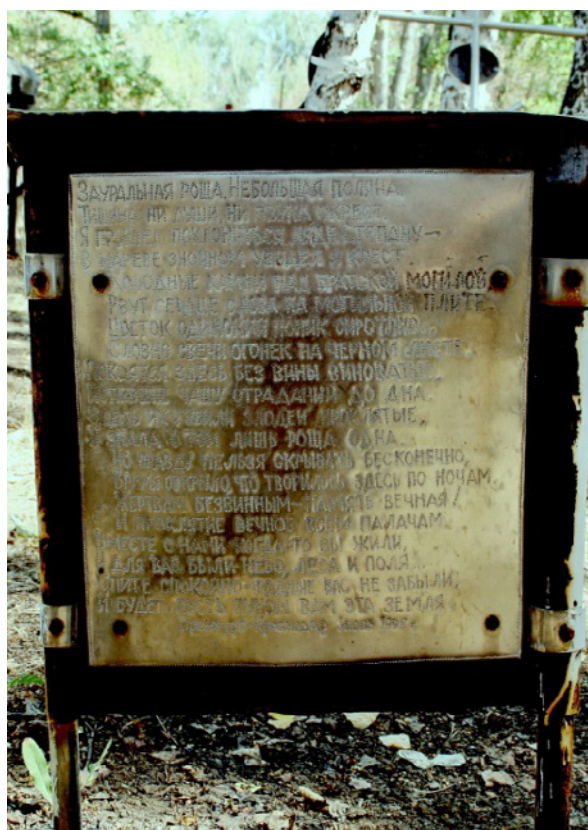 Зауральная роща. Небольшая поляна.
Тишина ни души, ни окрест.
Я пришел поклониться
В мареве знойном крест.
Холодные над братской могилой
Рвут сердце слова на могильной плите.
Цветок одинокий поник сиротливо,
Словно свечи огонек на черном
Покоятся здесь без вины виноватые,
чашу страданий до дна.
злодеи проклятые,
лишь роща одна.
Но правду нельзя скрывать бесконечно,
Время что творилось здесь по ночам.
Жертвам безвинным — память вечная!
И проклятие вечное всем палачам.
Вместе с нами когда-то вы жили,
И для вас были небо, леса и поля...
Спите спокойно родные вас не забыли,
И будет пусть пухом вам эта земля
1995 г.